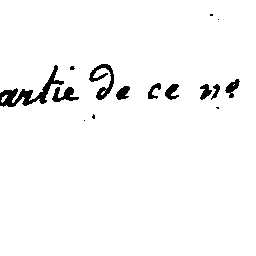 artie de ce nº